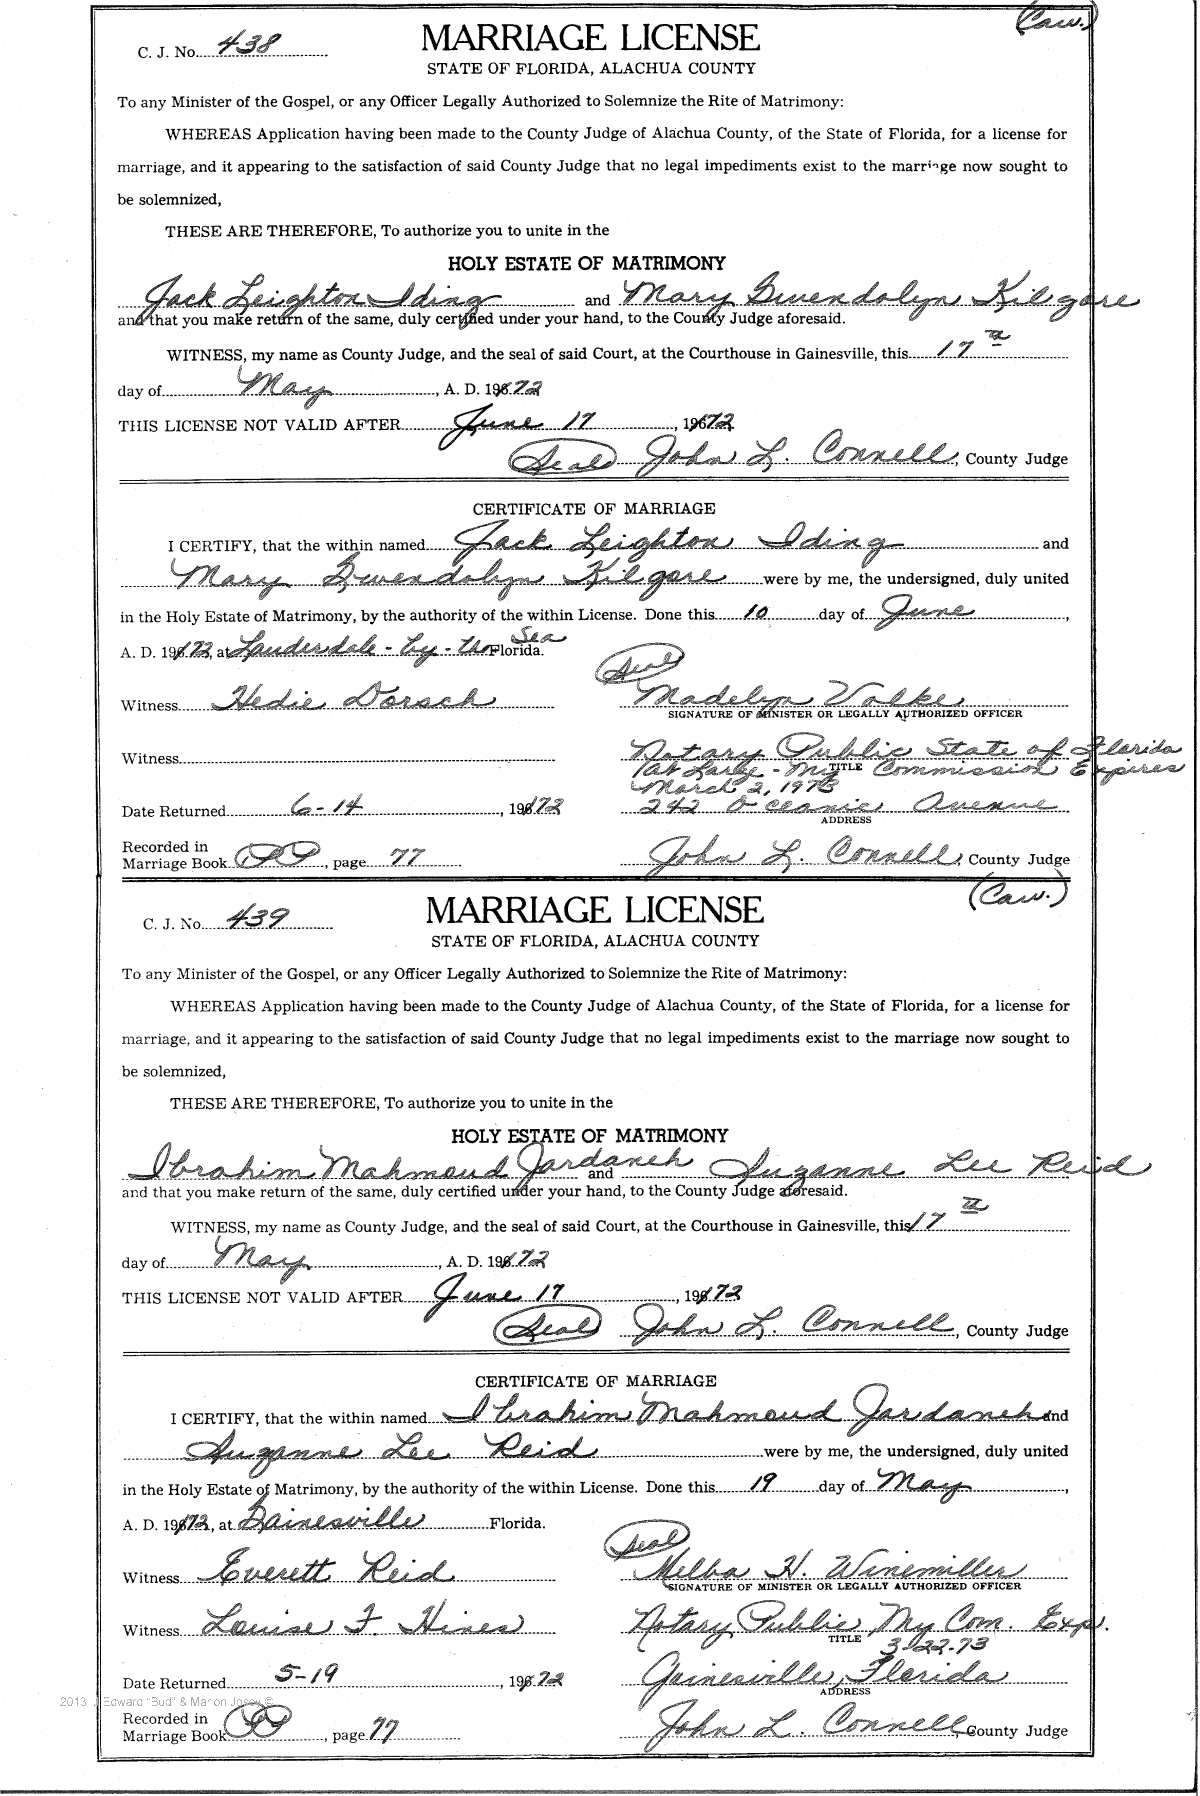 (Caw.)
C. J. No. 438 MARRIAGE LICENSE
STATE OF FLORIDA, ALACHUA COUNTY
To any Minister of the Gospel, or any Officer Legally Authorized to Solemnize the Rite of Matrimony:
WHEREAS Application having been made to the County Judge of Alachua County, of the State of Florida, for a license for
marriage, and it appearing to the satisfaction of said County Judge that no legal impediments exist to the marriage now sought to
be solemnized,
THESE ARE THEREFORE, To authorize you to unite in the
HOLY ESTATE OF MATRIMONY
Jack Leighton Iding and Mary Gwendolyn Kilgore
and that you make return of the same, duly certified under your hand, to the County Judge aforesaid.
WITNESS, my name as County Judge, and the seal of said Court, at the Courthouse in Gainesville, this 17th
day of May, A. D. 1972
THIS LICENSE NOT VALID AFTER June 17, 1972
(Seal) John L. Connell, County Judge
CERTIFICATE OF MARRIAGE
I CERTIFY, that the within named Jack Leighton Iding and
Mary Gwendolyn Kilgore were by me, the undersigned, duly united
in the Holy Estate of Matrimony, by the authority of the within License. Done this 10 day of June,
A. D. 1972, at Lauderdale-by-the Sea Florida.
(Seal)
Witness Hedie Dorsch Madelyn Valke
SIGNATURE OF MINISTER OR LEGALLY AUTHORIZED OFFICER
Witness Notary Public State of Florida
at Large - My Commission Expires
TITLE
March 2, 1973
Date Returned 6-14, 1972 242 Oceanic Avenue
ADDRESS
Recorded in
Marriage Book 99, page 77 John L. Connell, County Judge
(Caw.)
C. J. No. 439 MARRIAGE LICENSE
STATE OF FLORIDA, ALACHUA COUNTY
To any Minister of the Gospel, or any Officer Legally Authorized to Solemnize the Rite of Matrimony:
WHEREAS Application having been made to the County Judge of Alachua County, of the State of Florida, for a license for
marriage, and it appearing to the satisfaction of said County Judge that no legal impediments exist to the marriage now sought to
be solemnized,
THESE ARE THEREFORE, To authorize you to unite in the
HOLY ESTATE OF MATRIMONY
Ibrahim Mahmoud Jardaneh and Suzanne Lee Reid
and that you make return of the same, duly certified under your hand, to the County Judge aforesaid.
WITNESS, my name as County Judge, and the seal of said Court, at the Courthouse in Gainesville, this 17th
day of May, A. D. 1972
THIS LICENSE NOT VALID AFTER June 17, 1972
(Seal) John L. Connell, County Judge
CERTIFICATE OF MARRIAGE
I CERTIFY, that the within named Ibrahim Mahmoud Jardaneh and
Suzanne Lee Reid were by me, the undersigned, duly united
in the Holy Estate of Matrimony, by the authority of the within License. Done this 19 day of May,
A. D. 1972, at Gainesville Florida.
(Seal)
Witness Everett Reid Melba H. Winemiller
SIGNATURE OF MINISTER OR LEGALLY AUTHORIZED OFFICER
Witness Louise F. Hines Notary Public My Com. Exp.
TITLE 3-22-73
Date Returned 5-19, 1972 Gainesville, Florida
ADDRESS
2013 J Edward "Bud" & Marion Josey ©
Recorded in
Marriage Book 99, page 77 John L. Connell, County Judge